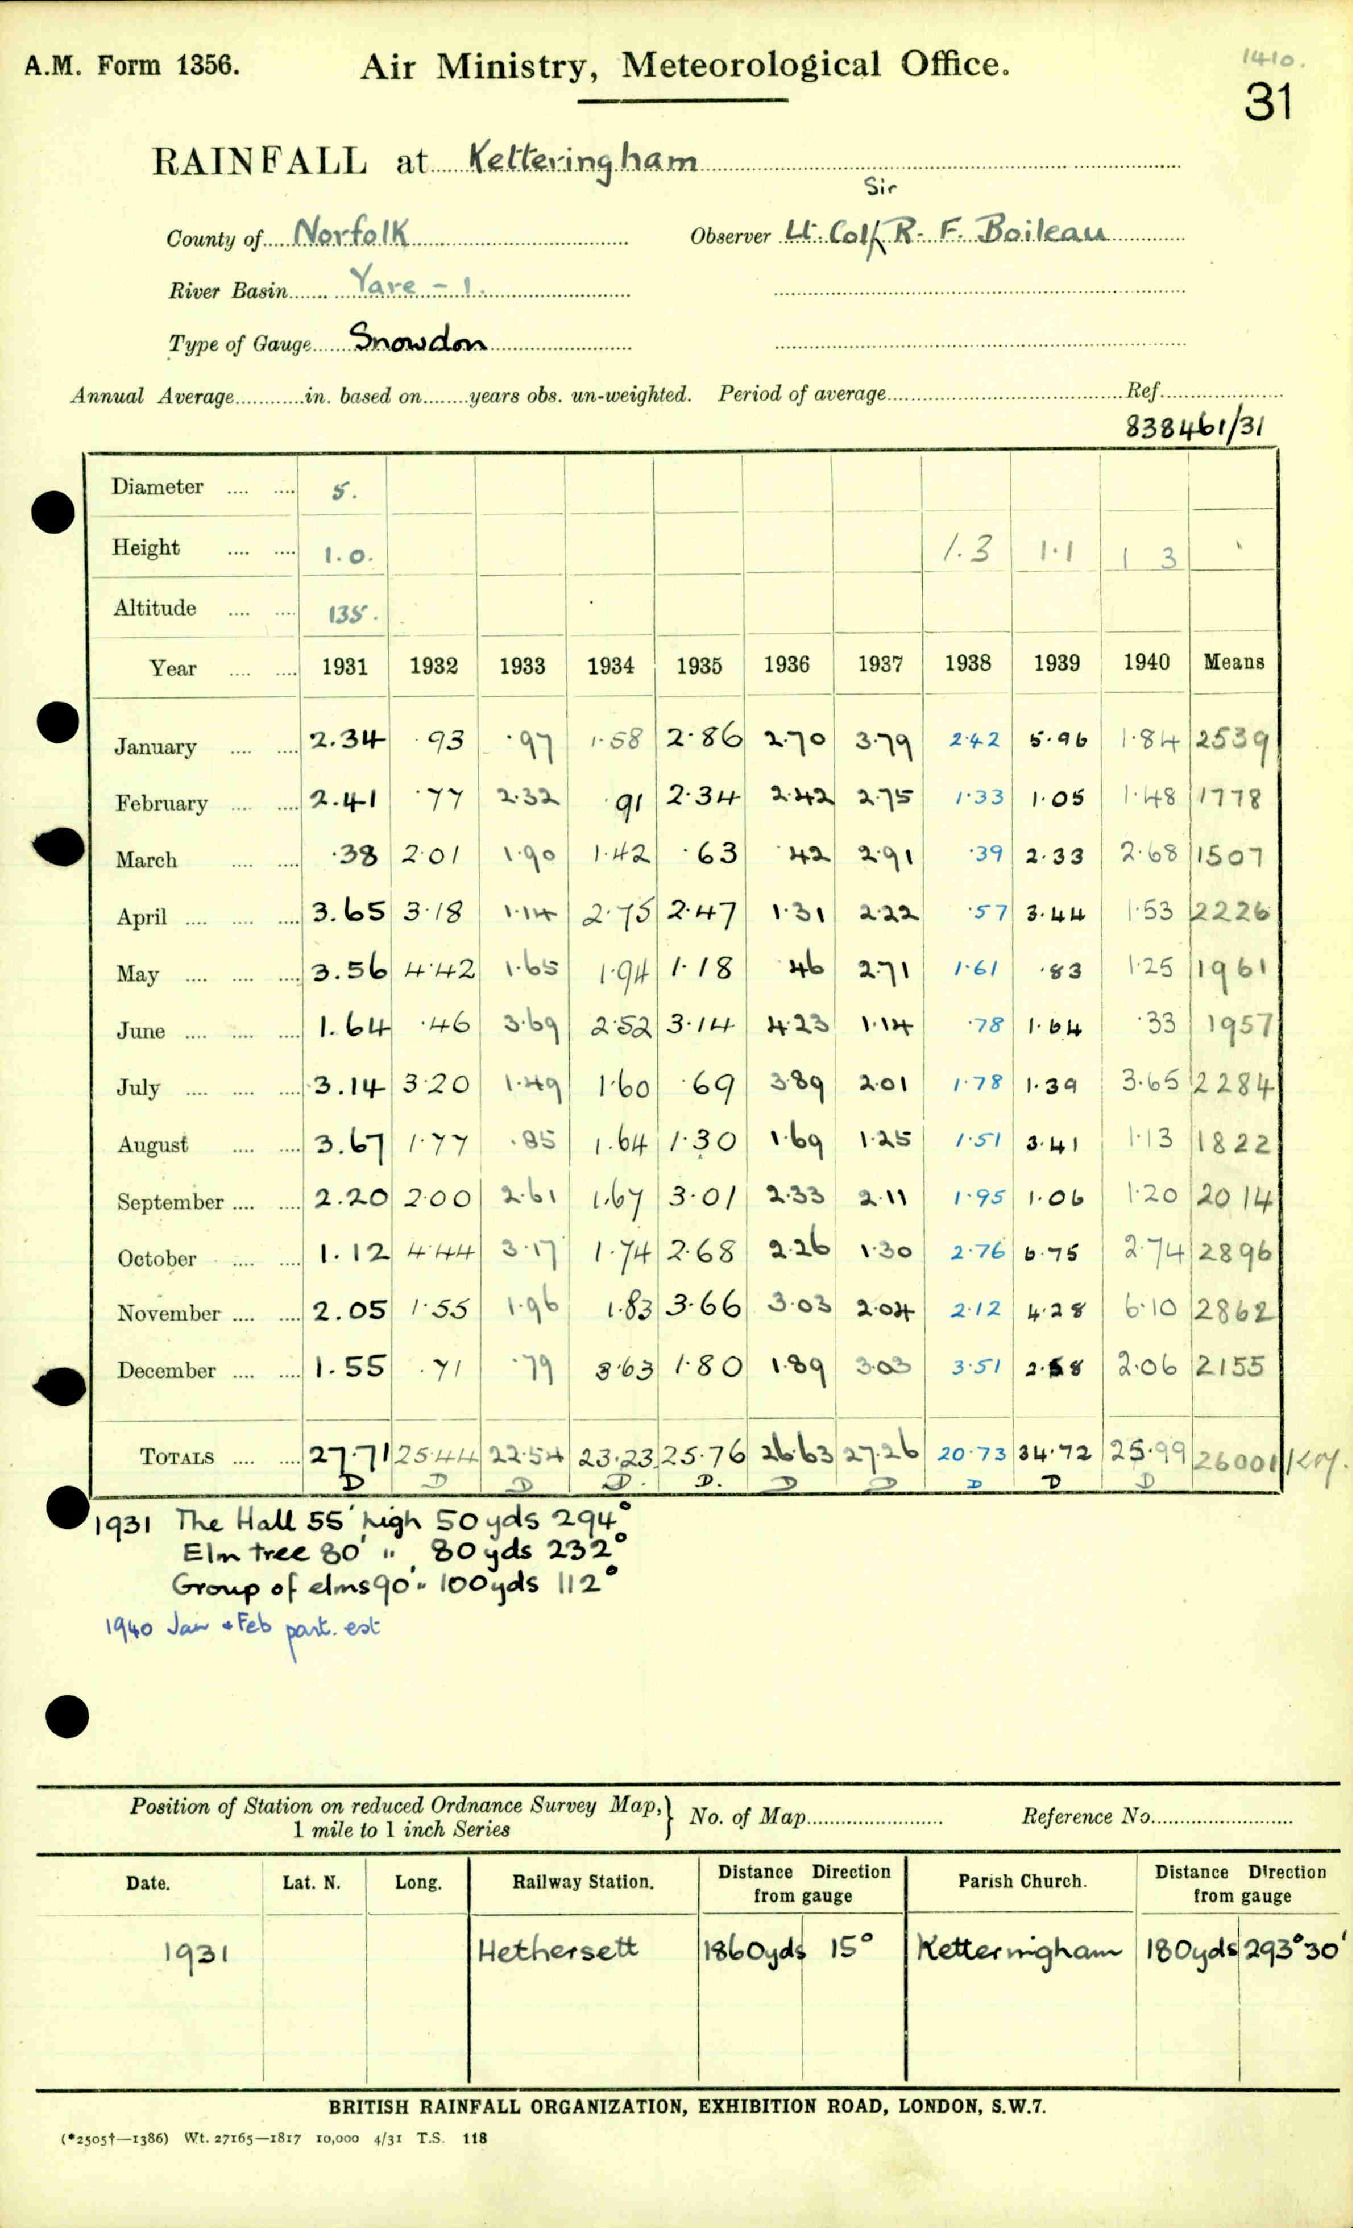 A.M. Form 1356. Air Ministry, Meteorological Office. 1410.
31
RAINFALL at Ketteringham
Sir
County of Norfolk Observer Lt. Col R. F. Boileau
River Basin Yare - 1.
Type of Gauge Snowdon
Annual Average............in. based on........years obs. un-weighted. Period of average............ Ref............
838461/31
Diameter .... .... 5.
Height .... .... 1.0. 1.3 1.1 1 3
Altitude .... .... 135.
Year .... .... 1931 1932 1933 1934 1935 1936 1937 1938 1939 1940 Means
January .... .... 2.34 .93 .97 1.58 2.86 2.70 3.79 2.42 5.96 1.84 2539
February .... .... 2.41 .77 2.32 .91 2.34 2.42 2.75 1.33 1.05 1.48 1778
March .... .... .38 2.01 1.90 1.42 .63 .42 2.91 .39 2.33 2.68 1507
April .... .... .... 3.65 3.18 1.14 2.75 2.47 1.31 2.22 .57 3.44 1.53 2226
May .... .... .... 3.56 4.42 1.65 1.94 1.18 .46 2.71 1.61 .83 1.25 1961
June .... .... .... 1.64 .46 3.69 2.52 3.14 4.23 1.14 .78 1.64 .33 1957
July .... .... .... 3.14 3.20 1.49 1.60 .69 3.89 2.01 1.78 1.39 3.65 2284
August .... .... 3.67 1.77 .85 1.64 1.30 1.69 1.25 1.51 3.41 1.13 1822
September .... .... 2.20 2.00 2.61 1.67 3.01 2.33 2.11 1.95 1.06 1.20 2014
October .... .... 1.12 4.44 3.17 1.74 2.68 2.26 1.30 2.76 6.75 2.74 2896
November .... .... 2.05 1.55 1.96 1.83 3.66 3.03 2.04 2.12 4.28 6.10 2862
December .... .... 1.55 .71 .79 3.63 1.80 1.89 3.03 3.51 2.58 2.06 2155
TOTALS .... .... 27.71 25.44 22.54 23.23 25.76 26.63 27.26 20.73 34.72 25.99 26001
D D D D. D. D D D D D
1931 The Hall 55' high 50 yds 294°
Elm tree 80' " 80 yds 232°
Group of elms 90' " 100 yds 112°
1940 Jan + Feb part. est
Position of Station on reduced Ordnance Survey Map, } No. of Map............ Reference No............
1 mile to 1 inch Series
Date. Lat. N. Long. Railway Station. Distance Direction from gauge Parish Church. Distance Direction from gauge
1931 Hethersett 1860yds 15° Ketteringham 180yds 293°30'
BRITISH RAINFALL ORGANIZATION, EXHIBITION ROAD, LONDON, S.W.7.
(*2505†—1386) Wt. 27165—1817 10,000 4/31 T.S. 118